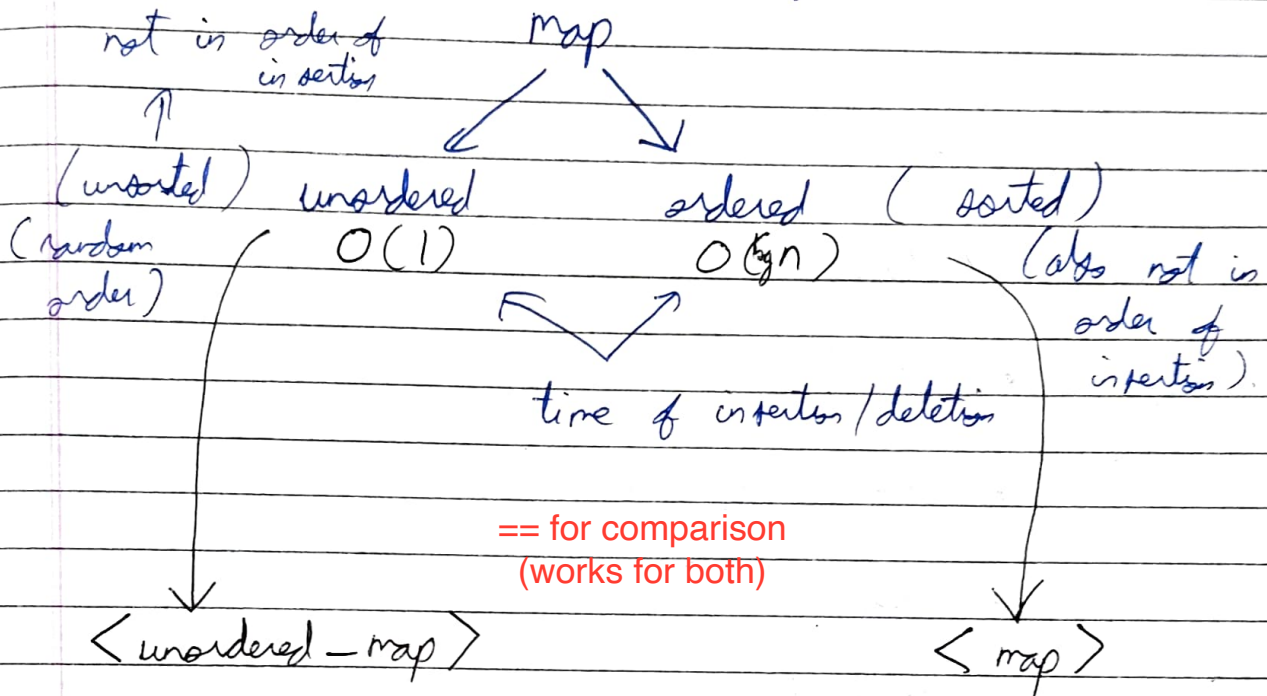 not in order of
insertion
map
(unsorted) unordered ordered (sorted)
(random
order)
O(1) O(logn)
(also not in
order of
insertion).
time of insertion/deletion
== for comparison
(works for both)
<unordered_map> <map>